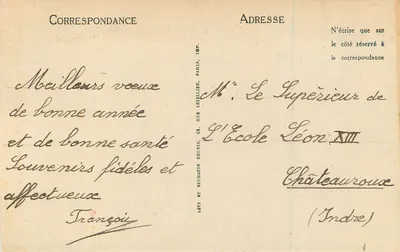 CORRESPONDANCE
ADRESSE
N'écrire que sur
le côté réservé à
la correspondance
Meilleurs voeux
de bonne année
et de bonne santé
Souvenirs fidèles et
affectueux
François
Mr. Le Supérieur de
L'Ecole Léon XIII
Châteauroux
(Indre)